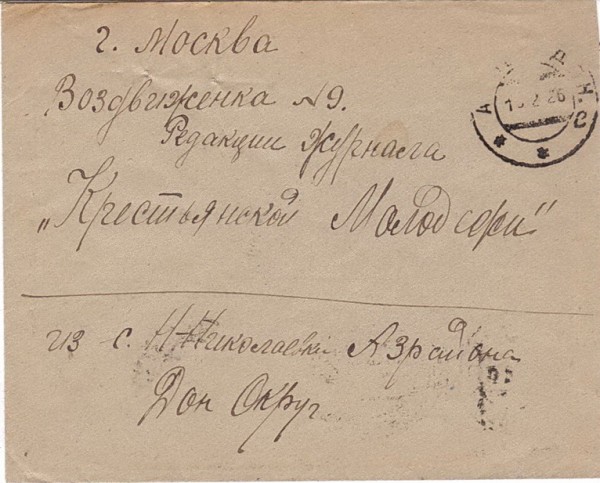 г. Москва
Воздвиженка №9.
Редакции журнала
„Крестьянской Молодежи"
из с. Н-Николаевки Азрайона
Дон Округ